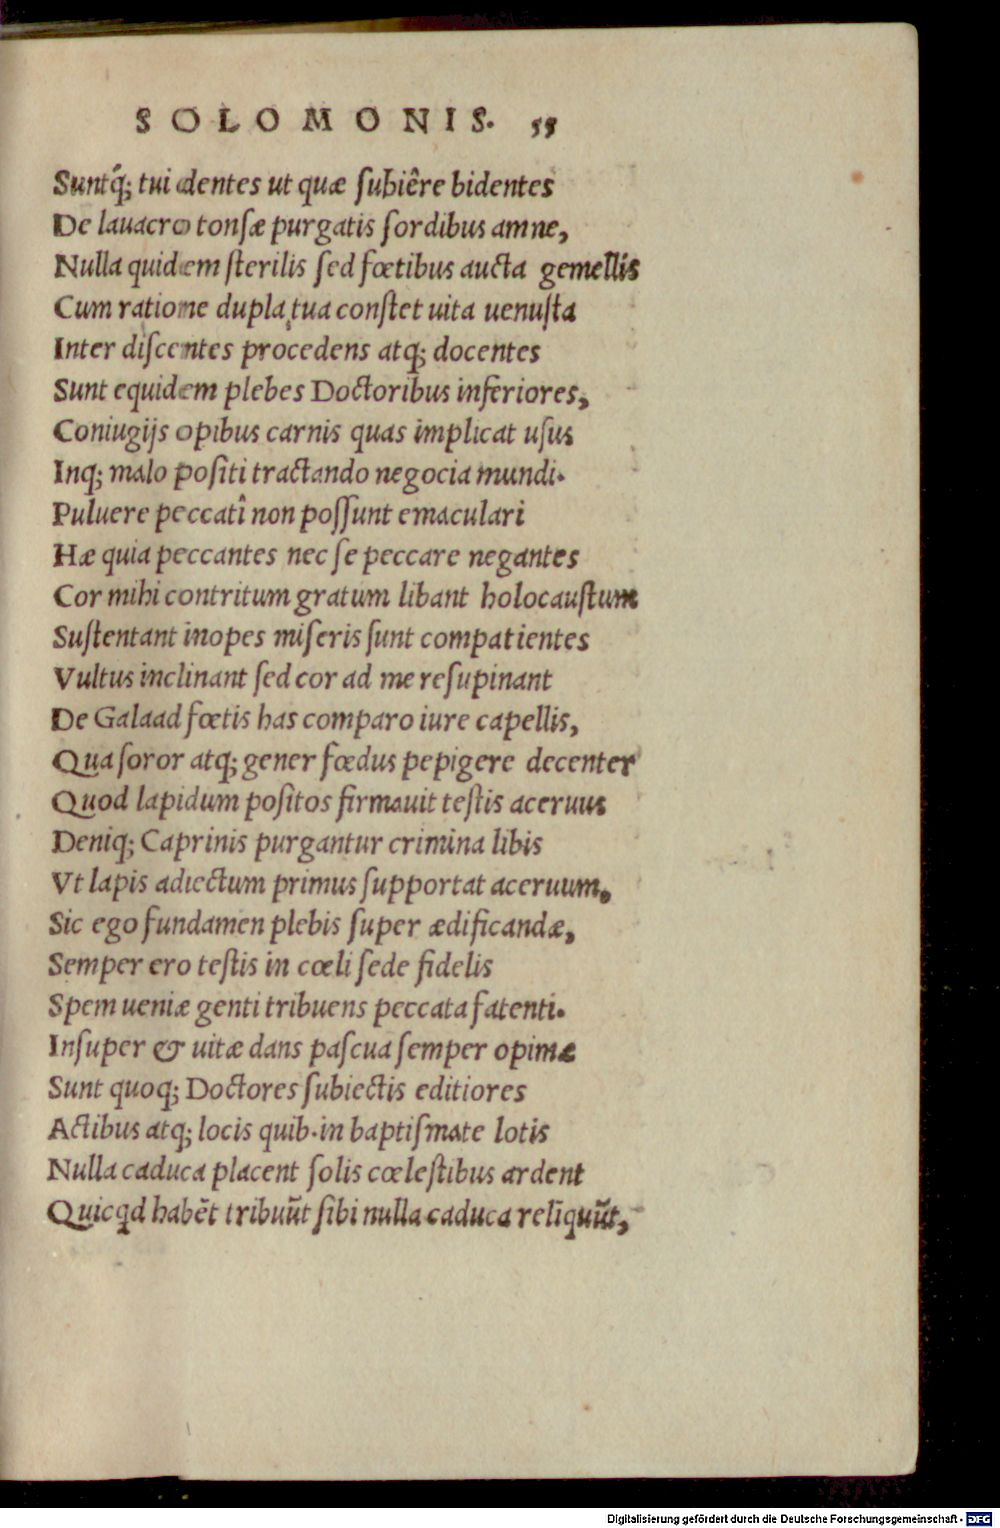 SOLOMONIS. 55
Suntq́; tui dentes ut quæ ſubiêre bidentes
De lauacro tonſæ purgatis ſordibus amne,
Nulla quidem ſterilis ſed fœtibus aucta gemellis
Cum ratione dupla tua conſtet uita uenuſta
Inter diſcentes procedens atq; docentes
Sunt equidem plebes Doctoribus inferiores,
Coniugijs opibus carnis quas implicat uſus
Inq; malo poſiti tractando negocia mundi.
Puluere peccati non poſſunt emaculari
Hæ quia peccantes nec ſe peccare negantes
Cor mihi contritum gratum libant holocauſtum
Suſtentant inopes miſeris ſunt compatientes
Vultus inclinant ſed cor ad me reſupinant
De Galaad fœtis has comparo iure capellis,
Qua ſoror atq; gener fœdus pepigere decenter
Quod lapidum poſitos firmauit teſtis aceruus
Deniq; Caprinis purgantur crimina libis
Vt lapis adiectum primus ſupportat aceruum,
Sic ego fundamen plebis ſuper ædificandæ,
Semper ero teſtis in cœli ſede fidelis
Spem ueniæ genti tribuens peccata fatenti.
Inſuper & uitæ dans paſcua ſemper opimæ
Sunt quoq; Doctores ſubiectis editiores
Actibus atq; locis quib. in baptiſmate lotis
Nulla caduca placent ſolis cœleſtibus ardent
Quicqd habēt tribuūt ſibi nulla caduca relīquūt,
Digitalisierung gefördert durch die Deutsche Forschungsgemeinschaft - DFG